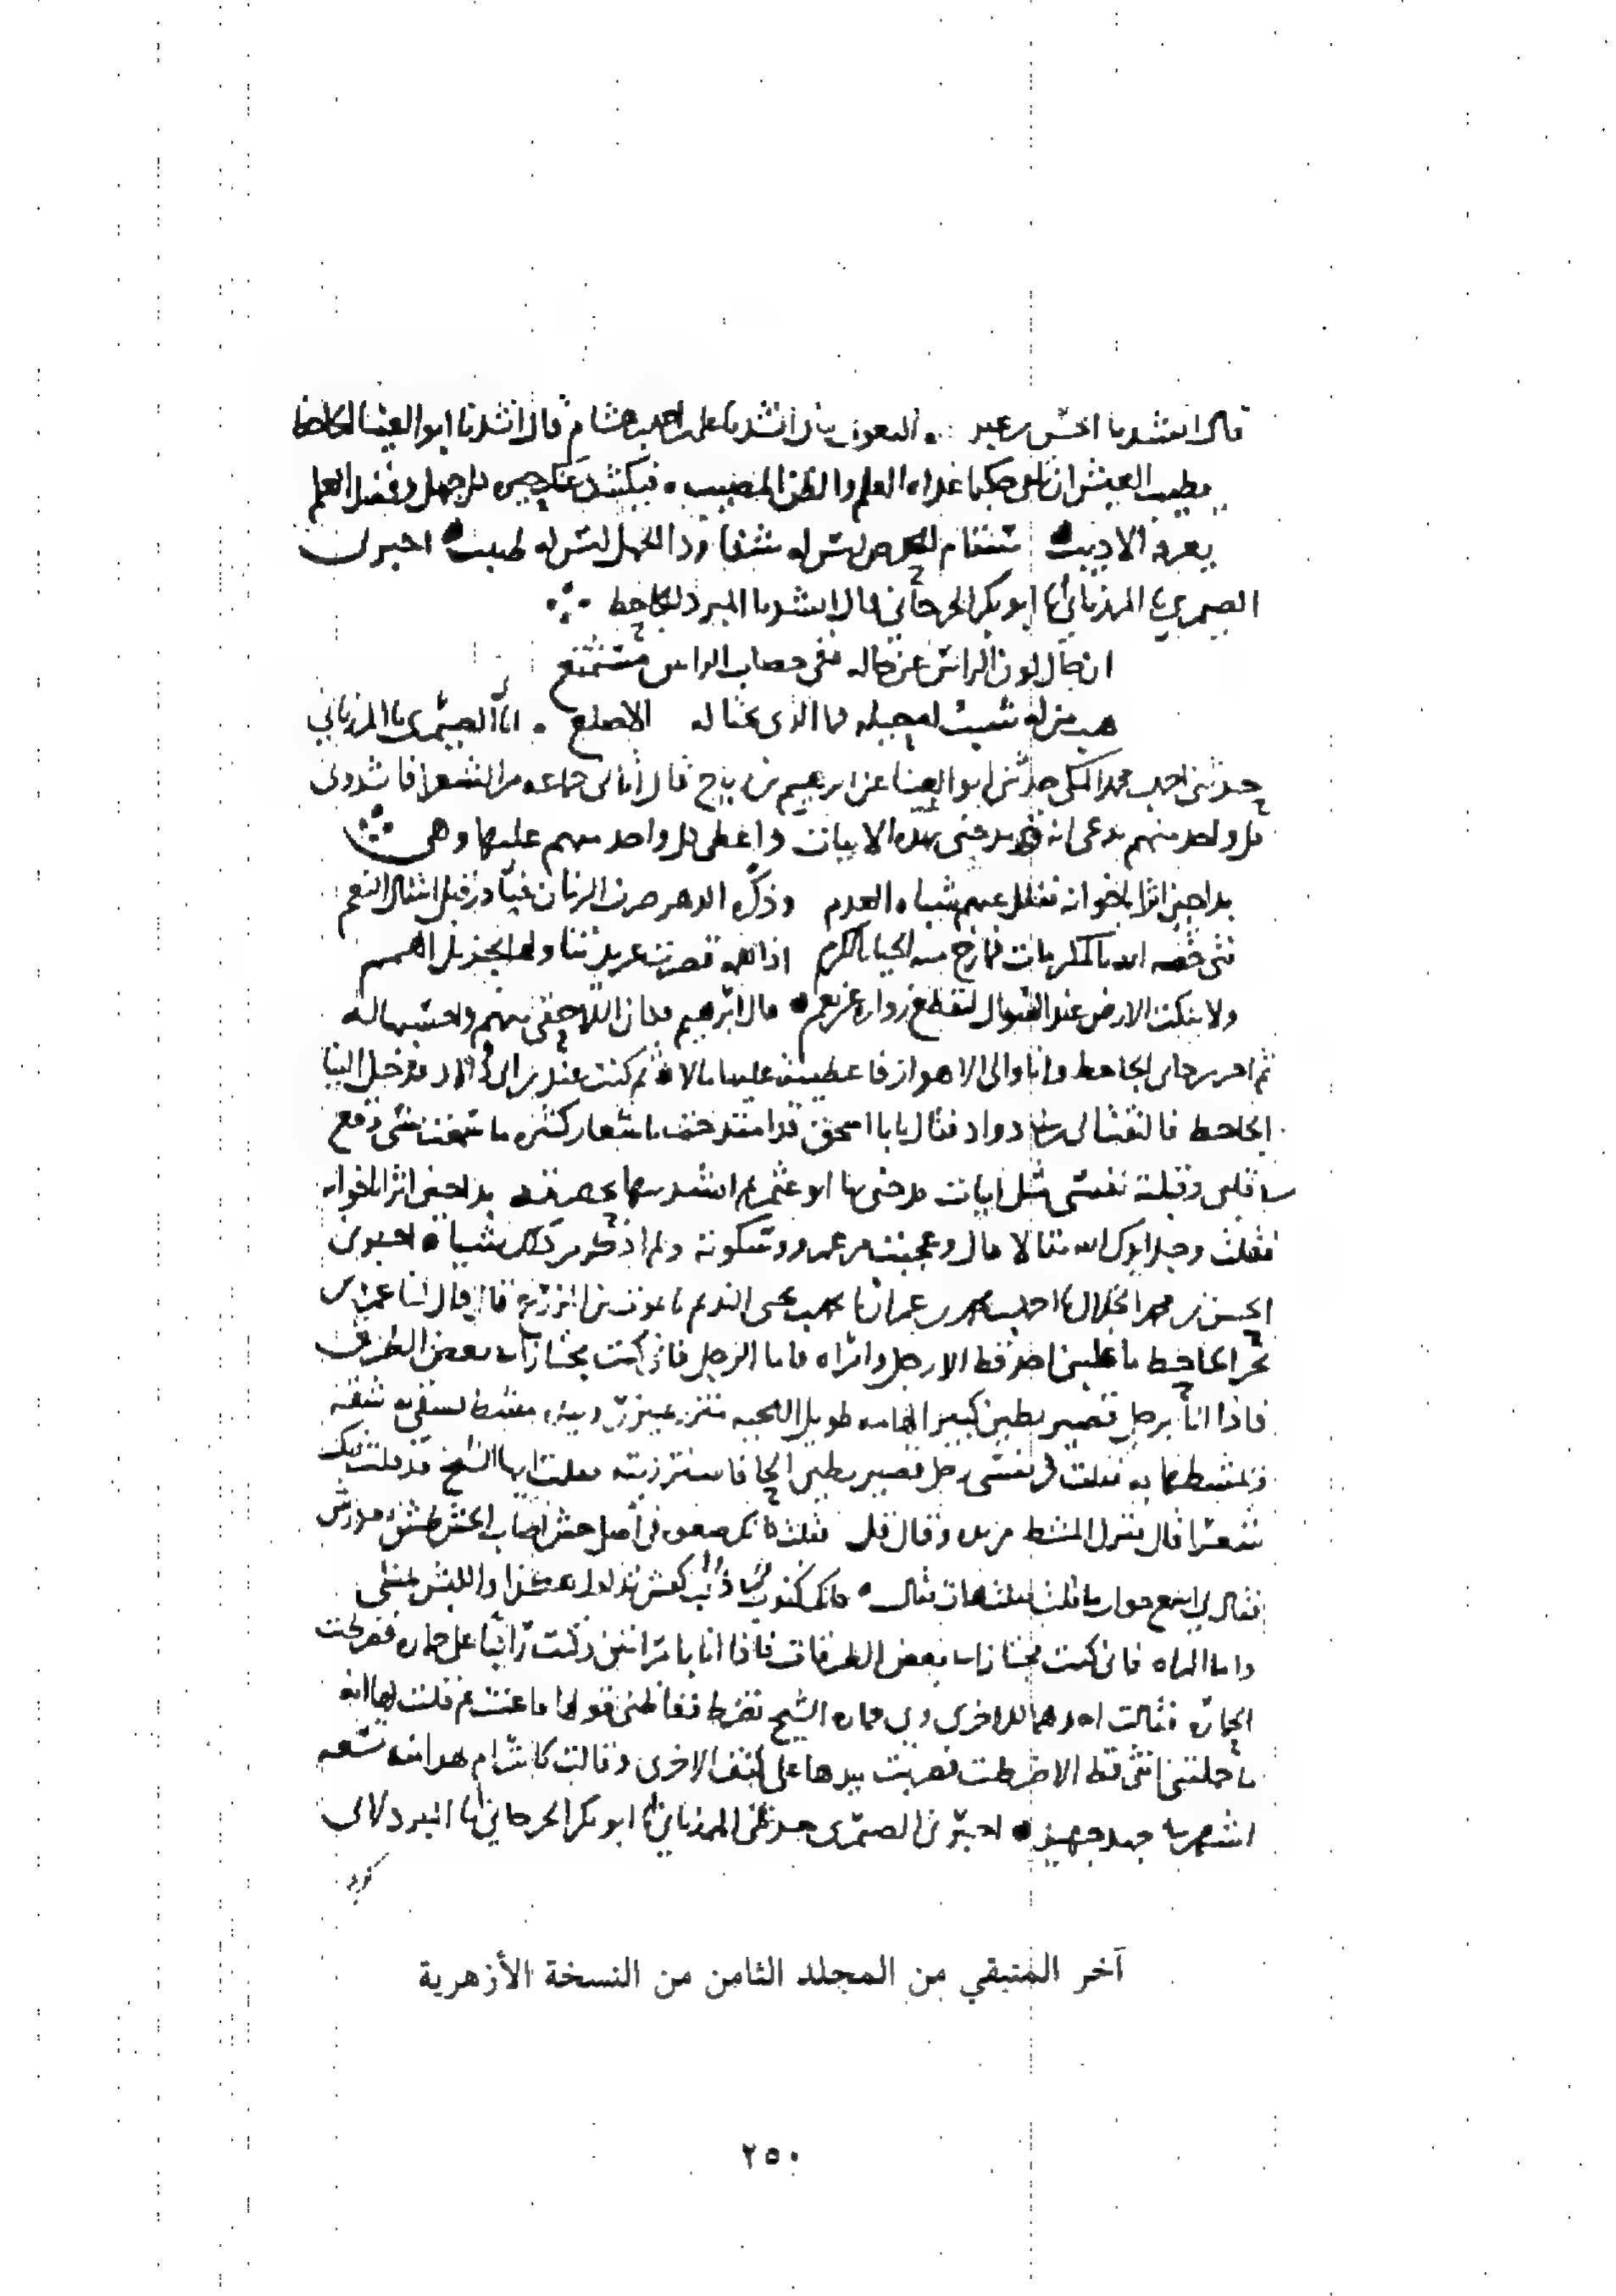 قال انشدنا الحسن بن عبد الله اللغوي قال انشدنا علي بن احمد بن هشام قال انشدنا ابو العينا للجاحظ
يطيب العيش ان تلقى حكيما غداه العلم والظن المصيب فيكشف عنك حيره كل جهل وفضل العلم
يعرفه الاديب سقام الحرص ليس له شفا ودا الجهل ليس له طبيب اخبرني
الصيمري نا المرزباني نا ابو بكر الجرجاني قال انشدنا المبرد للجاحظ
ان حال لون الراس عن حاله ففي خضاب الراس مستمتع
هب من له شيب له حيله فما الذي يحتاله الاصلع انا الصيمري نا المرزباني
حدثني احمد بن محمد المكي حدثني ابو العينا عن ابرهيم بن رباح قال اتاني جماعه من الشعرا فانشدوني
كل واحد منهم يدعي انه مدحني بهذه الابيات واعطي كل واحد منهم عليها وهي
بدا حين اثرا باخوانه ففلل عنهم شباه العدم وذكره الدهر صرف الزمان فبادر قبل انتقال النعم
فتى خصه الله بالمكرمات فمازج منه الحيا بالكرم اذا همه قصرت عن يد تناولها بجزيل الهمم
ولا ينكت الارض عند السوال ليقطع زواره عن نعم قال ابرهيم فكان اللاحقي منهم واحسبها له
ثم اخر من جاني الجاحظ وانا والي الاهواز فاعطيته عليها مالا ثم كنت عند بن ابي دواد فدخل الينا
الجاحظ فالتفت الي بن ابي دواد فقال يا ابا اسحق قد امتدحت باشعار كثيره ما سمعت شي وقع
في قلبي وقبلته نفسي مثل ابيات مدحني بها ابو عثمن ثم انشدنيها بحضرته بدا حين اثرا باخوانه
فقلت وجد ابوك الله مقالا فقال وعجبت من عمرو وسكوته ولم اذكر من ذلك شيا اخبرني
الحسن بن محمد الخلال نا احمد بن محمد بن عمران نا محمد بن يحيى النديم نا يموت بن المزرع قال قال لنا عمرو بن
بحر الجاحظ ما غلبني احد قط الا رجل وامراه فاما الرجل فاني كنت مجتازا في بعض الطرق
فاذا انا برجل قصير بطين كبير الهامه طويل اللحيه متزر بميزر وبيده مشط يسقي به شقه
ويمشطها به فقلت في نفسي رجل قصير بطين الحا فاستزريته فقلت ايها الشيخ قد قلت فيك
شعرا قال فترك المشط من يده وقال قل فقلت كانك صعوه في اصل حش اصاب الحش طش بعد رش
فقال لي اسمع جواب ما قلت فقلت هات فقال كانك كندب في ذنب كبش تدلدل هكذا والكبش يمشي
واما المراه فاني كنت مجتازا في بعض الطرقات فاذا انا بامراتين وكنت راكبا على حماره فضرطت
الحماره فقالت احدهما للاخرى وي حماره الشيخ تضرط فغاظني قولها فاعننت ثم قلت لها انه
ما حملتني انثى قط الا ضرطت فضربت بيدها على كتف الاخرى وقالت كانت ام هذا منه تسعه
اشهر في جهد جهيد اخبرني الصيمري حدثني المرزباني نا ابو بكر الجرجاني نا المبرد قال
آخر المتبقي من المجلد الثامن من النسخة الأزهرية
٢٥٠